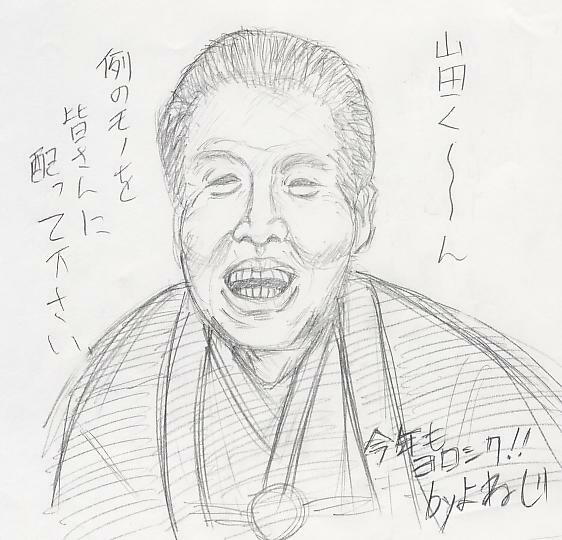 山田く〜〜ん
例のモノを
皆さんに
配って下さい
今年も
ヨロシク!!
byよねじい